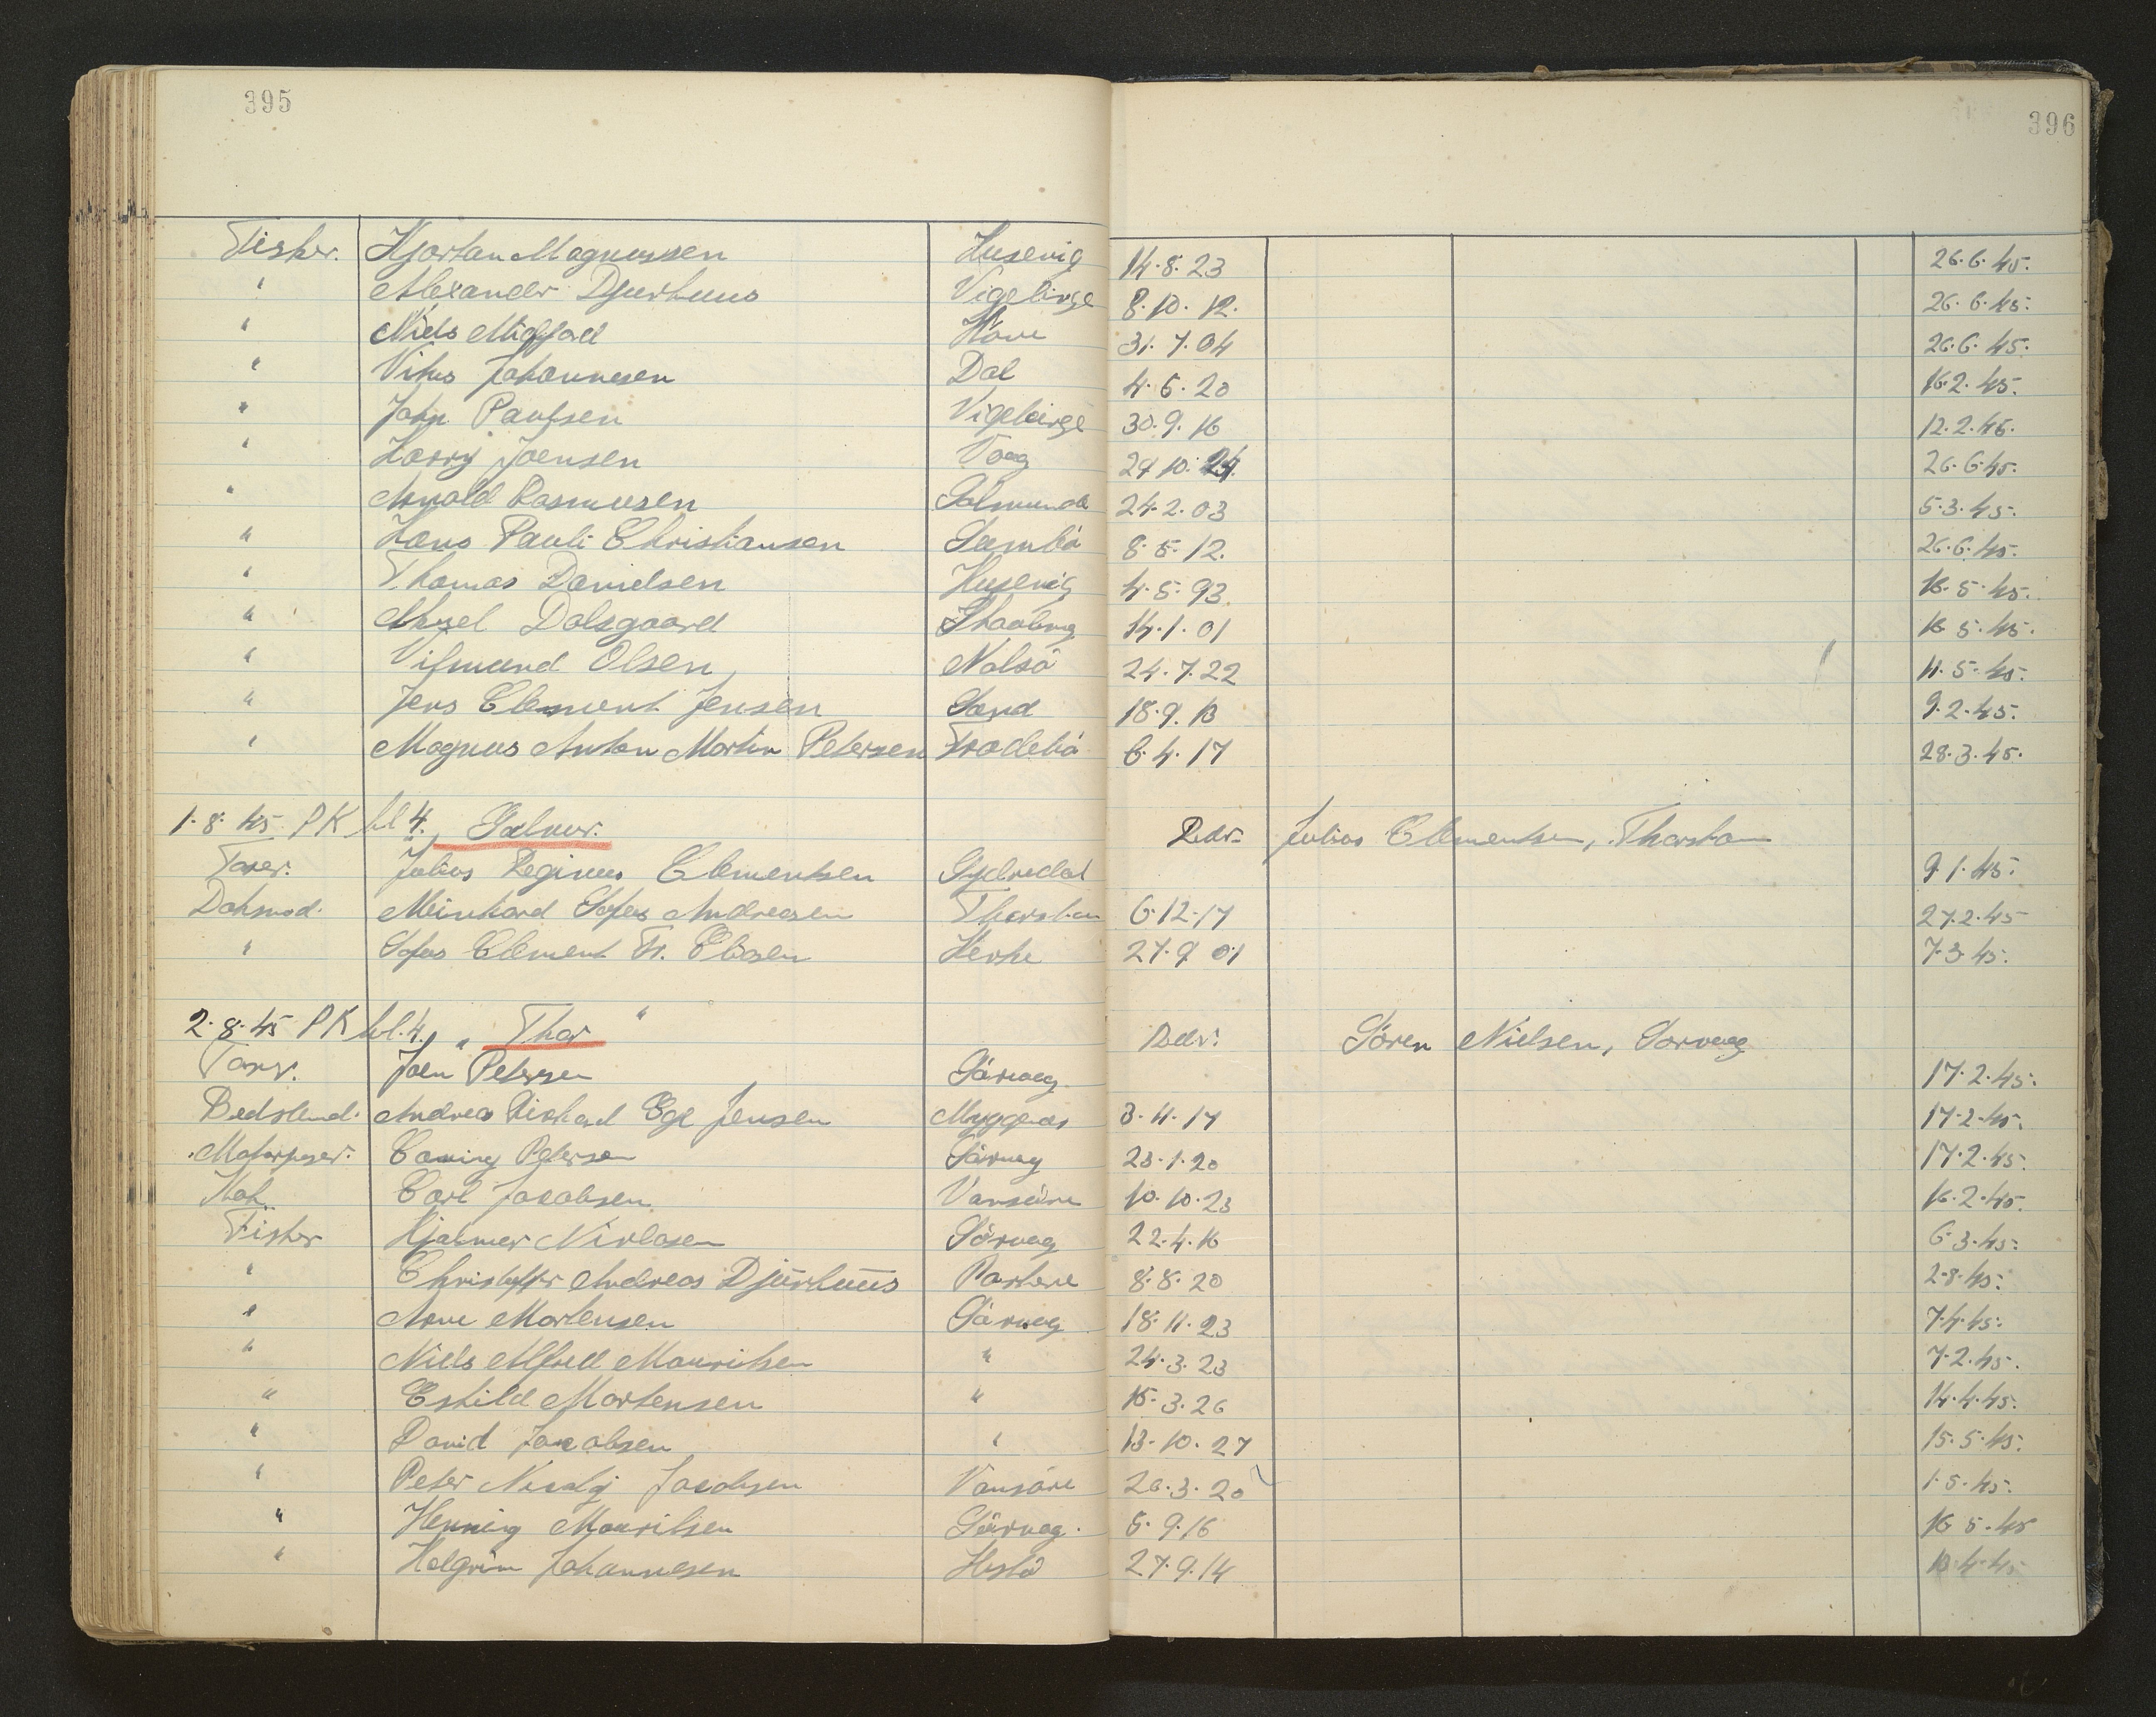 395
396
Fisker. Kjartan Magnussen Husevig 14.8.23 26.6.45.
" Alexander Djurhuus Vigebirge 8.10.12. 26.6.45.
" Niels Midjord Hove 31.7.04 26.6.45.
" Vitus Johannesen Dal 4.6.20 16.2.45.
" John Paulsen Vigebirge 30.9.16 12.2.45.
" Harry Joensen Vaag 29.10.24. 26.6.45.
" Arnold Rasmussen 24.2.03 5.3.45.
" Hans Pauli Christiansen Sumbö 8.5.12. 26.6.45.
" Thomas Danielsen Husevig 4.5.93. 16.5.45.
" Aksel Dalsgaard 14.1.01 16.5.45.
" Vilmund Olsen Nolsö 24.7.22 11.5.45.
" Jens Clement Jensen Sand 18.9.13 9.2.45.
" Magnus Anton Martin Petersen Frodebö 6.4.17 28.3.45.
1.8.45 PK bl 4. Rdr. Julius Clementsen, Thorshavn
Julius Reginus Clementsen 9.1.45.
Meinhard Sofus Andreasen Thorshavn 6.12.17 27.2.45
" Sofus Clement Fr. 27.9.01 7.3.45.
2.8.45 PK bl. 4. " Thor " Rdr. Sören Nielsen, Sorvaag
Joen Petersen Sörvaag 17.2.45.
Bedstmd. Andreas Rickard Ege Jensen Myggenæs 3.11.17 17.2.45.
Motorpasser. Petersen Sörvaag 23.1.20 17.2.45.
Kok Carl Jacobsen 10.10.23 16.2.45.
Fisker Hjalmer Niclasen Sörvaag 22.4.16 6.3.45.
" Christoffer Andreas Djurhuus 8.8.20 2.8.45.
" Arne Mortensen Sörvaag 18.11.23 7.4.45.
" Niels Alfred Mouritsen " 24.3.23 7.2.45.
" Eskild Mortensen " 15.3.26 14.4.45.
" David Jacobsen " 13.10.27 15.5.45.
" Peter Jacobsen 26.3.20 1.5.45.
" Henning Mouritsen Sörvag. 5.9.16 16.5.45
" Halgrim Johannesen Hestö 27.9.14